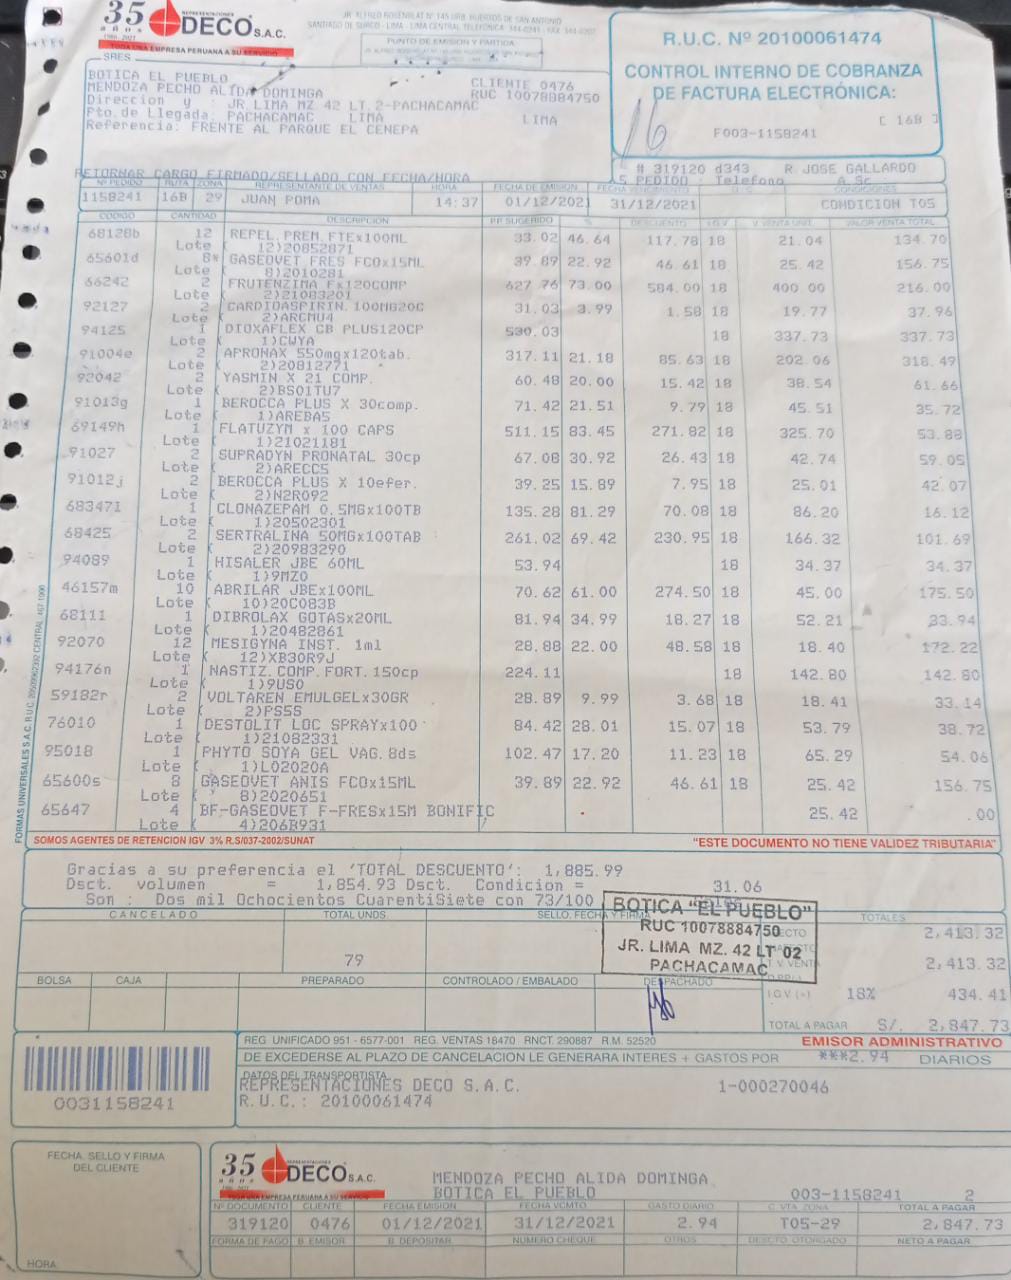 35 años
1986-2021
REPRESENTACIONES
DECO S.A.C.
TODA UNA EMPRESA PERUANA A SU SERVICIO
JR. ALFREDO ROSENBLAT N° 145 URB. HUERTOS DE SAN ANTONIO
SANTIAGO DE SURCO - LIMA - LIMA CENTRAL TELEFÓNICA:
PUNTO DE EMISION Y PARTIDA
R.U.C. Nº 20100061474
CONTROL INTERNO DE COBRANZA
DE FACTURA ELECTRÓNICA:
16
[ 16B ]
F003-1158241
SRES
BOTICA EL PUEBLO
MENDOZA PECHO ALIDA DOMINGA
CLIENTE 0476
RUC 10078884750
Direccion y : JR. LIMA MZ 42 LT.2-PACHACAMAC
Pto.de Llegada: PACHACAMAC LIMA LIMA
Referencia: FRENTE AL PARQUE EL CENEPA
RETORNAR CARGO FIRMADO/SELLADO CON FECHA/HORA
# 319120 d343 R. JOSE GALLARDO
PEDIDO : Telefono
Nº PEDIDO RUTA ZONA REPRESENTANTE DE VENTAS HORA FECHA DE EMISION FECHA VENCIMIENTO CONDICIONES
1158241 16B 29 JUAN POMA 14:37 01/12/2021 31/12/2021 CONDICION T05
CODIGO CANTIDAD DESCRIPCION P.P. SUGERIDO % DESCUENTO I.G.V. V. VENTA UNIT. VALOR VENTA TOTAL
68128b 12 REPEL.PREM.FTEx100ML 33.02 46.64 117.78 18 21.04 134.70
Lote ( 12)20852871
65601d 8* GASEOVET FRES FCOx15ML 39.89 22.92 46.61 18 25.42 156.75
Lote ( 8)2010281
66242 2 FRUTENZIMA Fx120COMP 627.76 73.00 584.00 18 400.00 216.00
Lote ( 2)21083201
92127 2 CARDIOASPIRIN.100MG20C 31.03 3.99 1.58 18 19.77 37.96
Lote ( 2)ARCMU4
94125 1 DIOXAFLEX CB PLUS120CP 530.03 18 337.73 337.73
Lote ( 1)CWYA
91004e 2 APRONAX 550mgx120tab. 317.11 21.18 85.63 18 202.06 318.49
Lote ( 2)20812771
92042 2 YASMIN X 21 COMP. 60.48 20.00 15.42 18 38.54 61.66
Lote ( 2)BS01TU7
91013g 1 BEROCCA PLUS X 30comp. 71.42 21.51 9.79 18 45.51 35.72
Lote ( 1)AREBA5
69149h 1 FLATUZYM x 100 CAPS 511.15 83.45 271.82 18 325.70 53.88
Lote ( 1)21021181
91027 2 SUPRADYN PRONATAL 30cp 67.08 30.92 26.43 18 42.74 59.05
Lote ( 2)ARECC5
91012j 2 BEROCCA PLUS X 10efer. 39.25 15.89 7.95 18 25.01 42.07
Lote ( 2)N2R092
68347l 1 CLONAZEPAM 0.5MGx100TB 135.28 81.29 70.08 18 86.20 16.12
Lote ( 1)20502301
68425 2 SERTRALINA 50MGx100TAB 261.02 69.42 230.95 18 166.32 101.69
Lote ( 2)20983290
94089 1 HISALER JBE 60ML 53.94 18 34.37 34.37
Lote ( 1)9MZO
46157m 10 ABRILAR JBEx100ML 70.62 61.00 274.50 18 45.00 175.50
Lote ( 10)20C083B
68111 1 DIBROLAX GOTASx20ML 81.94 34.99 18.27 18 52.21 33.94
Lote ( 1)20482861
92070 12 MESIGYNA INST. 1ml 28.88 22.00 48.58 18 18.40 172.22
Lote ( 12)XB30R9J
94176n 1 NASTIZ.COMP.FORT.150cp 224.11 18 142.80 142.80
Lote ( 1)9USO
59182r 2 VOLTAREN EMULGELx30GR 28.89 9.99 3.68 18 18.41 33.14
Lote ( 2)PS5S
76010 1 DESTOLIT LOC SPRAYx100 84.42 28.01 15.07 18 53.79 38.72
Lote ( 1)21082331
95018 1 PHYTO SOYA GEL VAG.8ds 102.47 17.20 11.23 18 65.29 54.06
Lote ( 1)L02020A
65600s 8 GASEOVET ANIS FCOx15ML 39.89 22.92 46.61 18 25.42 156.75
Lote ( 8)2020651
65647 4 BF-GASEOVET F-FRESx15M BONIFIC 25.42 .00
Lote ( 4)206B931
SOMOS AGENTES DE RETENCION IGV 3% R.S/037-2002/SUNAT
"ESTE DOCUMENTO NO TIENE VALIDEZ TRIBUTARIA"
Gracias a su preferencia el 'TOTAL DESCUENTO': 1,885.99
Dsct. volumen = 1,854.93 Dsct. Condicion = 31.06
Son : Dos mil Ochocientos CuarentiSiete con 73/100
CANCELADO TOTAL UNDS. SELLO. FECHA Y FIRMA TOTALES
79
BOTICA "EL PUEBLO"
RUC 10078884750
JR. LIMA MZ. 42 LT 02
PACHACAMAC
2,413.32
2,413.32
I.G.V (=) 18% 434.41
TOTAL A PAGAR S/. 2,847.73
BOLSA CAJA PREPARADO CONTROLADO / EMBALADO DESPACHADO
REG. UNIFICADO 951 - 6577-001 REG. VENTAS 18470 RNCT. 290887 R.M. 52520
EMISOR ADMINISTRATIVO
DE EXCEDERSE AL PLAZO DE CANCELACION LE GENERARA INTERES + GASTOS POR ***2.94 DIARIOS
0031158241
DATOS DEL TRANSPORTISTA
REPRESENTACIONES DECO S.A.C. 1-000270046
R.U.C.: 20100061474
FECHA. SELLO Y FIRMA
DEL CLIENTE
HORA
35 años
REPRESENTACIONES
DECO S.A.C.
TODA UNA EMPRESA PERUANA A SU SERVICIO
MENDOZA PECHO ALIDA DOMINGA
BOTICA EL PUEBLO 003-1158241 2
Nº DOCUMENTO CLIENTE FECHA EMISION FECHA VCMTO GASTO DIARIO C. VTA. ZONA TOTAL A PAGAR
319120 0476 01/12/2021 31/12/2021 2.94 T05-29 2,847.73
FORMA DE PAGO B. EMISOR B. DEPOSITAR NUMERO CHEQUE OTROS DESCTO. OTORGADO NETO A PAGAR